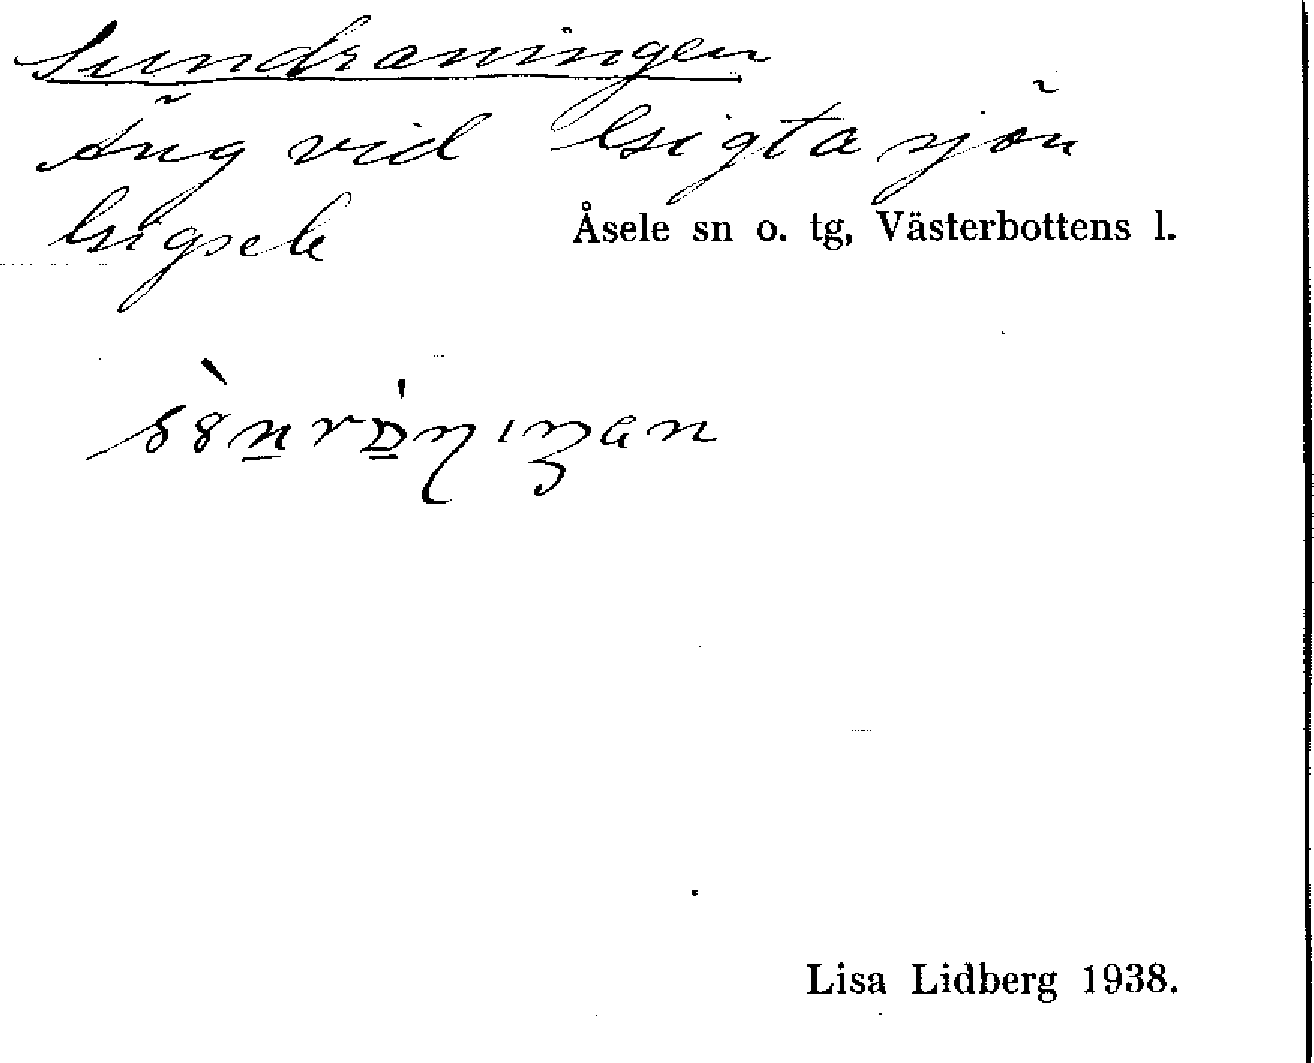 Sundraningen
Äng vid Gigtasjön
Gigsele Åsele sn o. tg, Västerbottens l.
Lisa Lidberg 1938.